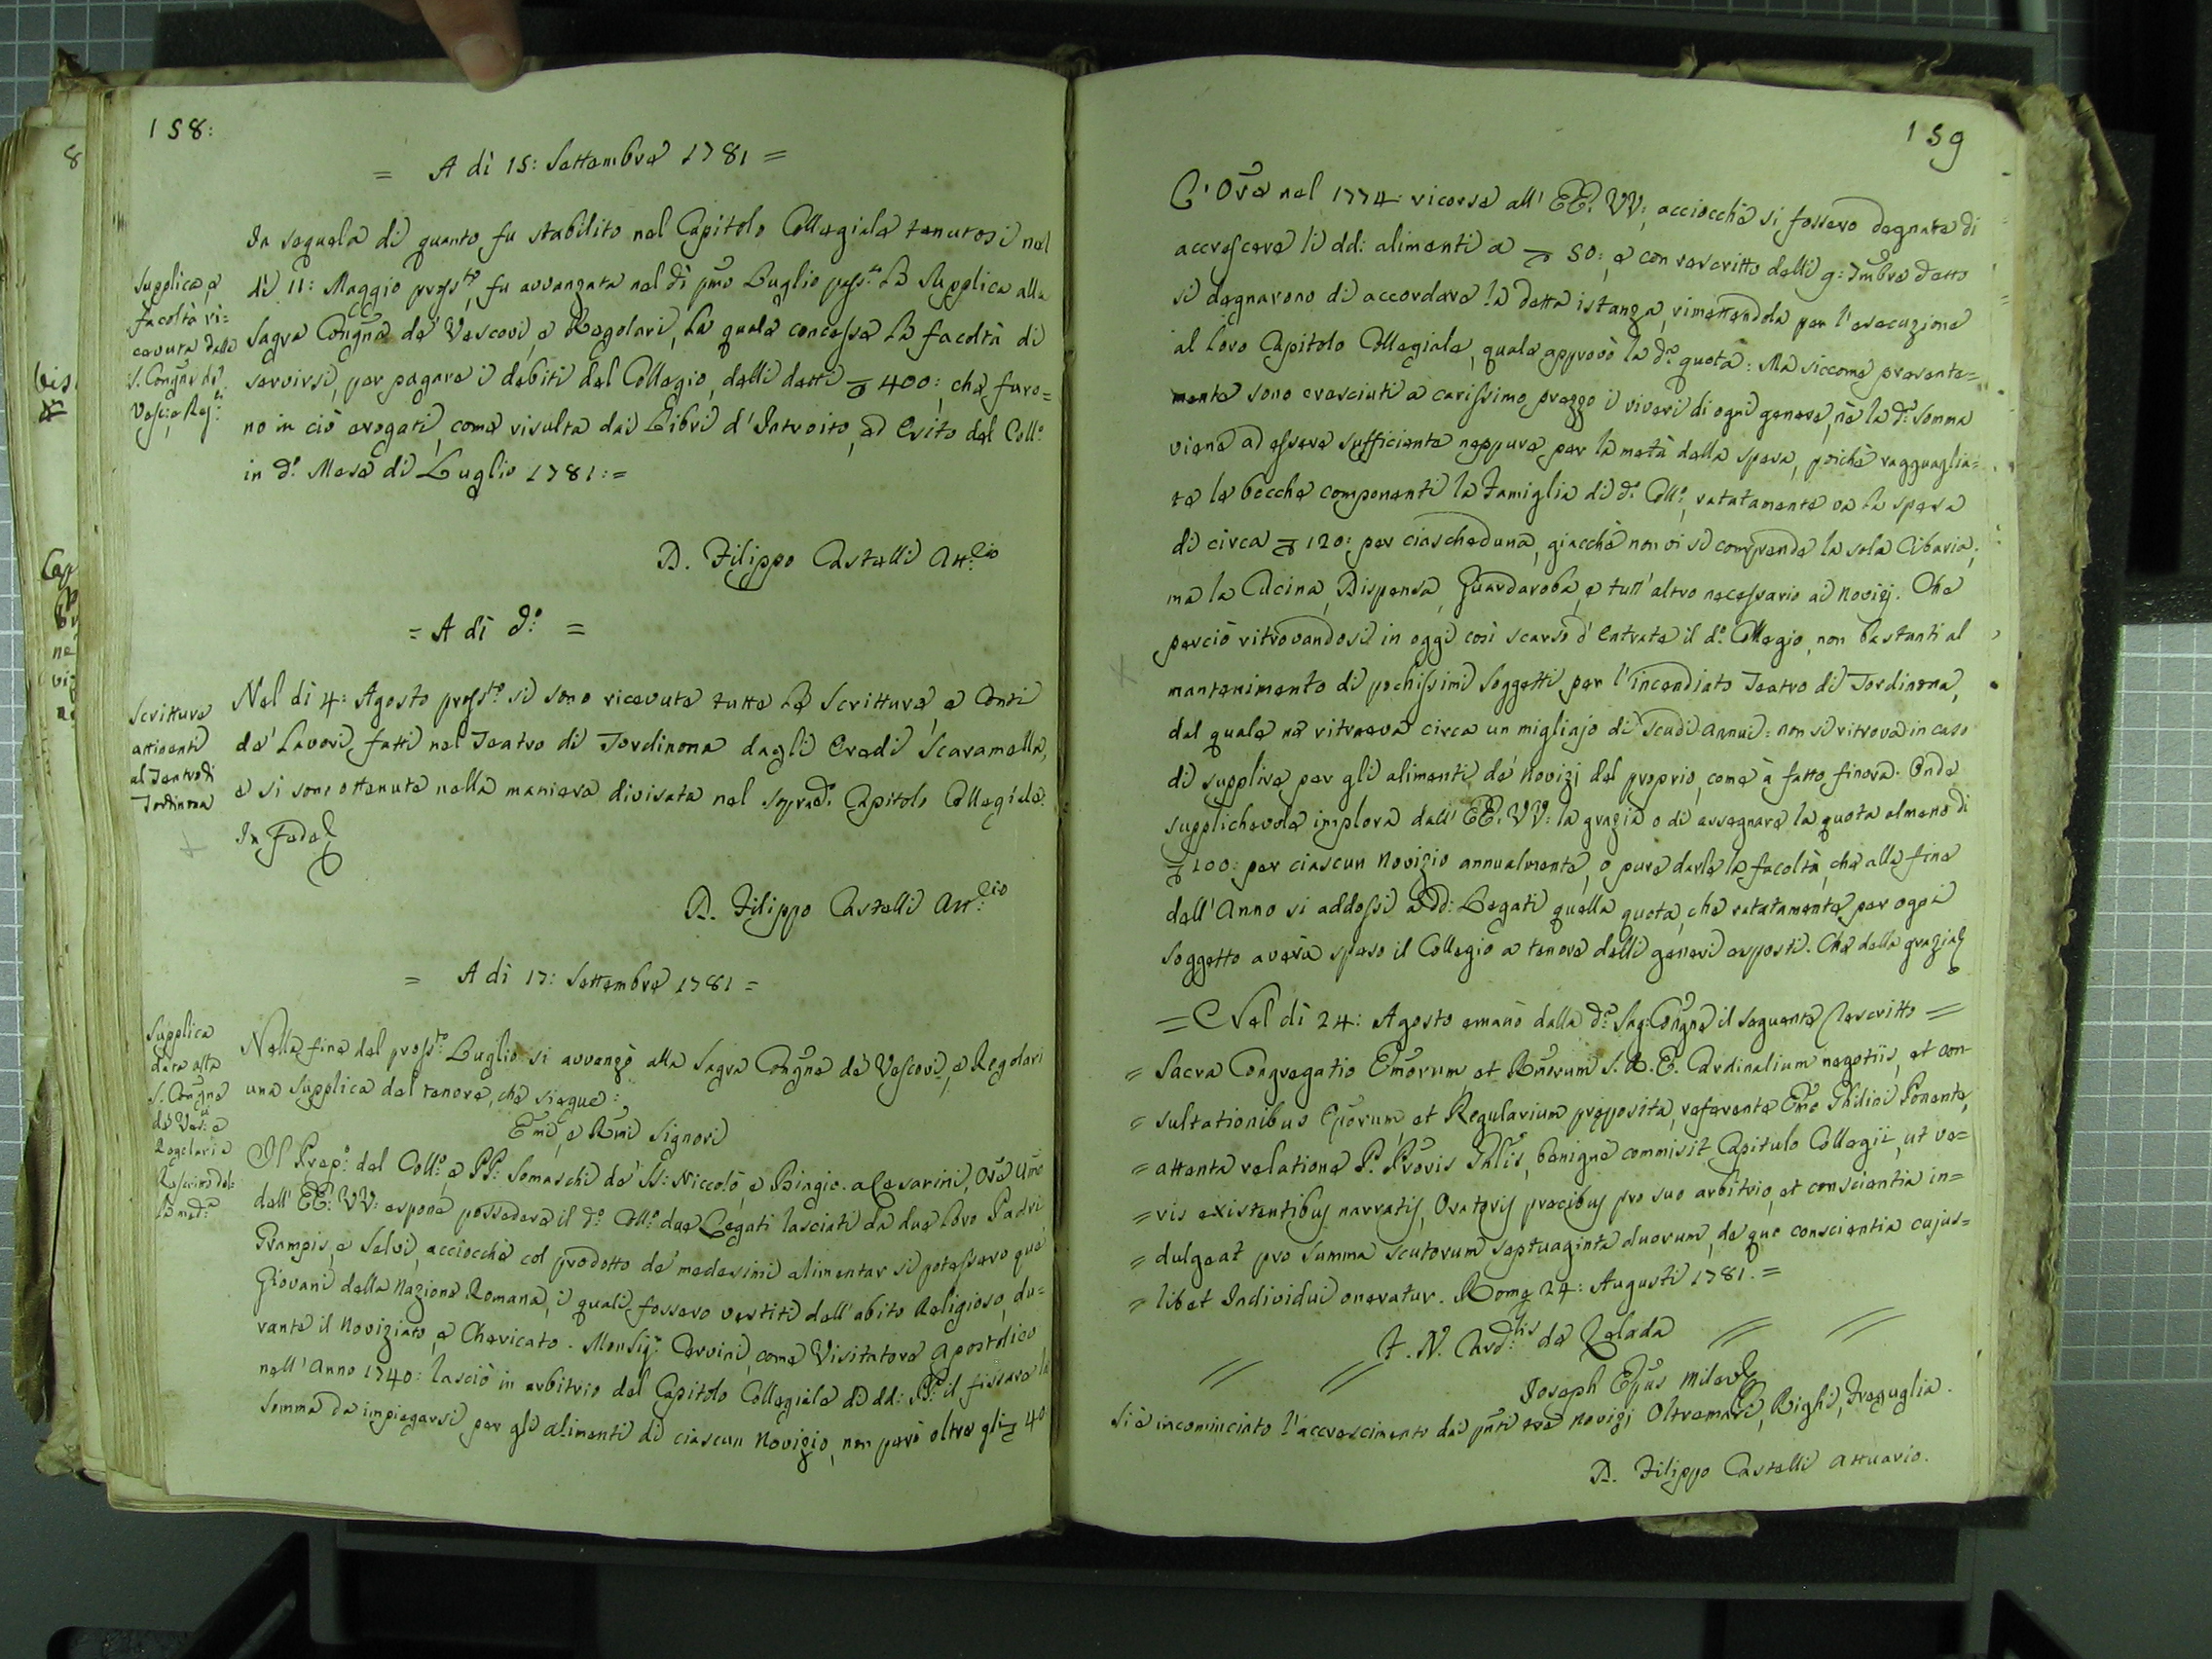 158:
= A dì 15: Settembre 1781 =
In sequela di quanto fu stabilito nel Capitolo Collegiale tenutosi nel
dì 11: Maggio pross.to, fu avvanzata nel dì pmo Luglio pass.to la Supplica alla
Sagra Congne de' Vescovi, e Regolari, la quale concesse la facoltà di
servirsi, per pagare i debiti del Collegio, delli detti 400:, che furo=
no in ciò erogati, come risulta dai Libri d'Introito, ed Esito del Coll.o
in d.o Mese di Luglio 1781:=
Supplica, e
facoltà ri=
cevuta dalla
S. Congne de'
Vesc.i e Reg.ri
D. Filippo Castelli Att.rio
= A dì d.o =
Nel dì 4: Agosto pross.to si sono ricevute tutte le Scritture, e Conti
de' Lavori fatti nel Teatro di Tordinona dagli Eredi Scaramella,
e si sono ottenute nella maniera divisata nel soprad.o Capitolo Collegiale.
In Fede
Scritture
attinenti
al Teatro di
Tordinona
D. Filippo Castelli Att.rio
= A dì 17: Settembre 1781 =
Nella fine del pross.to Luglio si avvanzò alla Sagra Congne de' Vescovi, e Regolari
una Supplica del tenore, che siegue:
Emi, e Rmi Signori
Supplica
data alla
S. Congne
de' Ves.i e
Regolari e
Rescritto del=
la med.a
Il Prep.o del Coll.o, e PP: Somaschi de' SS: Niccolò, e Biagio a Cesarini, Ore Umo
dell' EE: VV: espone possedere il d.o Coll.o due Legati lasciati da due loro Padri
Prampis, e Selvi, acciocchè col prodotto de' medesimi alimentar si potessero que'
Giovani della Nazione Romana, i quali fossero vestiti dell'abito Religioso, du=
rante il Noviziato, e Chericato. Monsig.r Cervini, come Visitatore Apostolico
nell'Anno 1740: lasciò in arbitrio del Capitolo Collegiale di dd: PP: il fissare la
somma da impiegarsi per gli alimenti di ciascun Novizio, non però oltre gli 40
159
L'Ore nel 1774: ricorse all' EE: VV: acciocchè si fossero degnate di
accrescere li dd: alimenti a 50:, e con rescritto delli 9:Imbre detto
si degnarono di accordare la detta istanza, rimettendola per l'esecuzione
al loro Capitolo Collegiale, quale approvò la d.a quota: Ma siccome presente=
mente sono cresciuti a carissimo prezzo i viveri di ogni genere, nè la d.a somma
viene ad essere sufficiente neppure per la metà della spesa, poichè ragguaglia=
te le bocche componenti la Famiglia di d.o Coll.o, ratatamente va la spesa
di circa 120: per ciascheduna, giacchè non vi si comprende la sola Cibaria,
ma la Cucina, Dispensa, Guardaroba, e tutt'altro necessario ai Novizj. Che
perciò ritrovandosi in oggi così scarso d'Entrate il d.o Collegio, non bastanti al
mantenimento di pochissimi Soggetti per l'incendiato Teatro di Tordinona,
dal quale ne ritraeva circa un migliajo di Scudi annui: non si ritrova in caso
di supplire per gli alimenti de' Novizj del proprio, come à fatto finora. Onde
supplichevole implora dall' EE: VV: la grazia o di assegnare la quota almeno di
100: per ciascun Novizio annualmente, o pure darle la facoltà, che alla fine
dell'Anno si addossi a dd: Legati quella quota, che ratatamente per ogni
Soggetto averà speso il Collegio a tenore delli generi esposti. Che della grazia
= Nel dì 24: Agosto emanò dalla d.a Sag: Congne il seguente Rescritto =
= Sacra Congregatio Emorum, et Rmorum S. R. E. Cardinalium negotiis, et con-
= sultationibus Eporum, et Regularium preposita, referente Emo Philici Ponente,
= attenta relatione P. Proris Gnlis, benigne commisit Capitulo Collegii, ut ve=
= ris existentibus narratis, Oratoris precibus pro suo arbitrio, et conscientia in=
= dulgeat pro summa scutorum septuaginta duorum, de quo conscientia cujus=
= libet Individui oneratur. Rome 24: Augusti 1781. =
F. N. Card.lis de Zelada
Joseph Epus
Si è incominciato l'accrescimento dai pnti tre Novizj Oltremari, Righi, Freguglia.
D. Filippo Castelli Attuario.